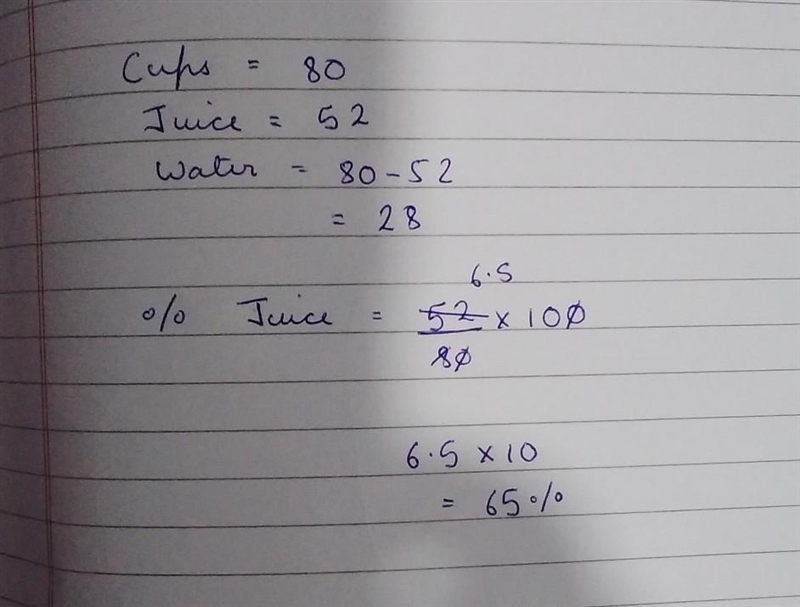 Cups = 80
Juice = 52
Water = 80 - 52
= 28
6.5
% Juice = 52/80 x 100
6.5 x 10
= 65%